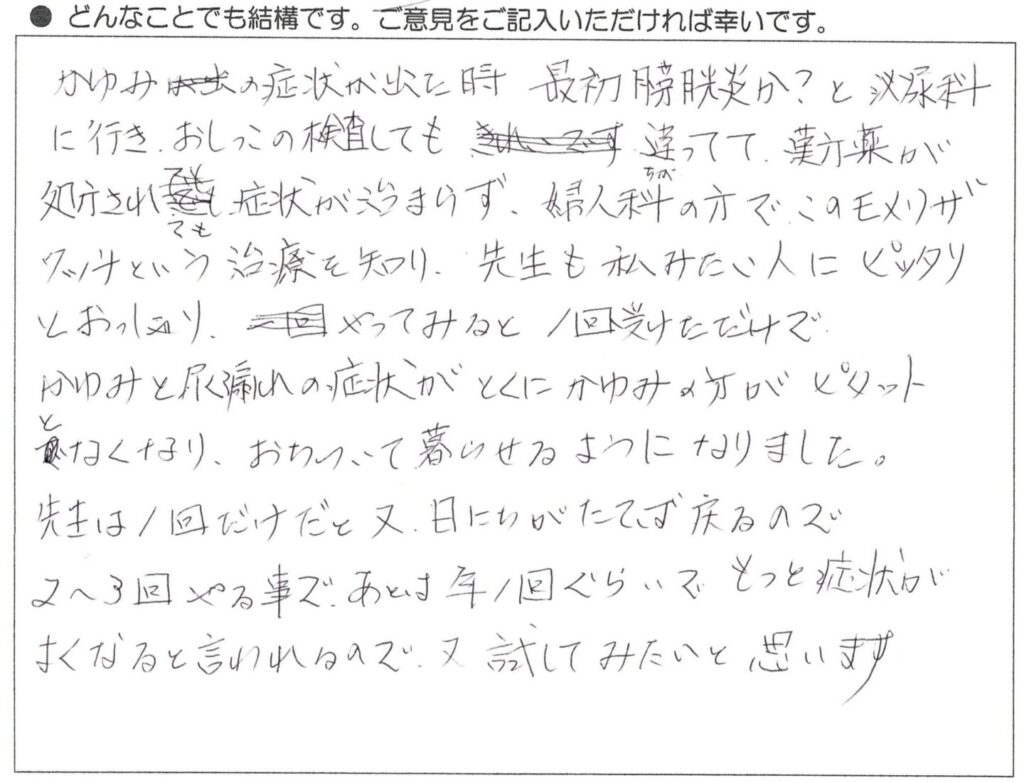 ● どんなことでも結構です。ご意見をご記入いただければ幸いです。
かゆみの症状が出た時 最初膀胱炎か?と泌尿科
に行き、おしっこの検査しても 違ってて、漢方薬が
ちが
処方されても、症状が治まらず、婦人科の方で、このモメリザ
ワッナという治療を知り、先生も私みたい人にピッタリ
とおっしゃり、やってみると1回受けただけで
かゆみと尿漏れの症状がとくにかゆみの方がピタット
となくなり、おちついて暮らせるようになりました。
先生は1回だけだと又、日にちがたてば戻るので
2〜3回やる事で、あとは年1回ぐらいで もっと症状が
よくなると言われるので、又試してみたいと思います